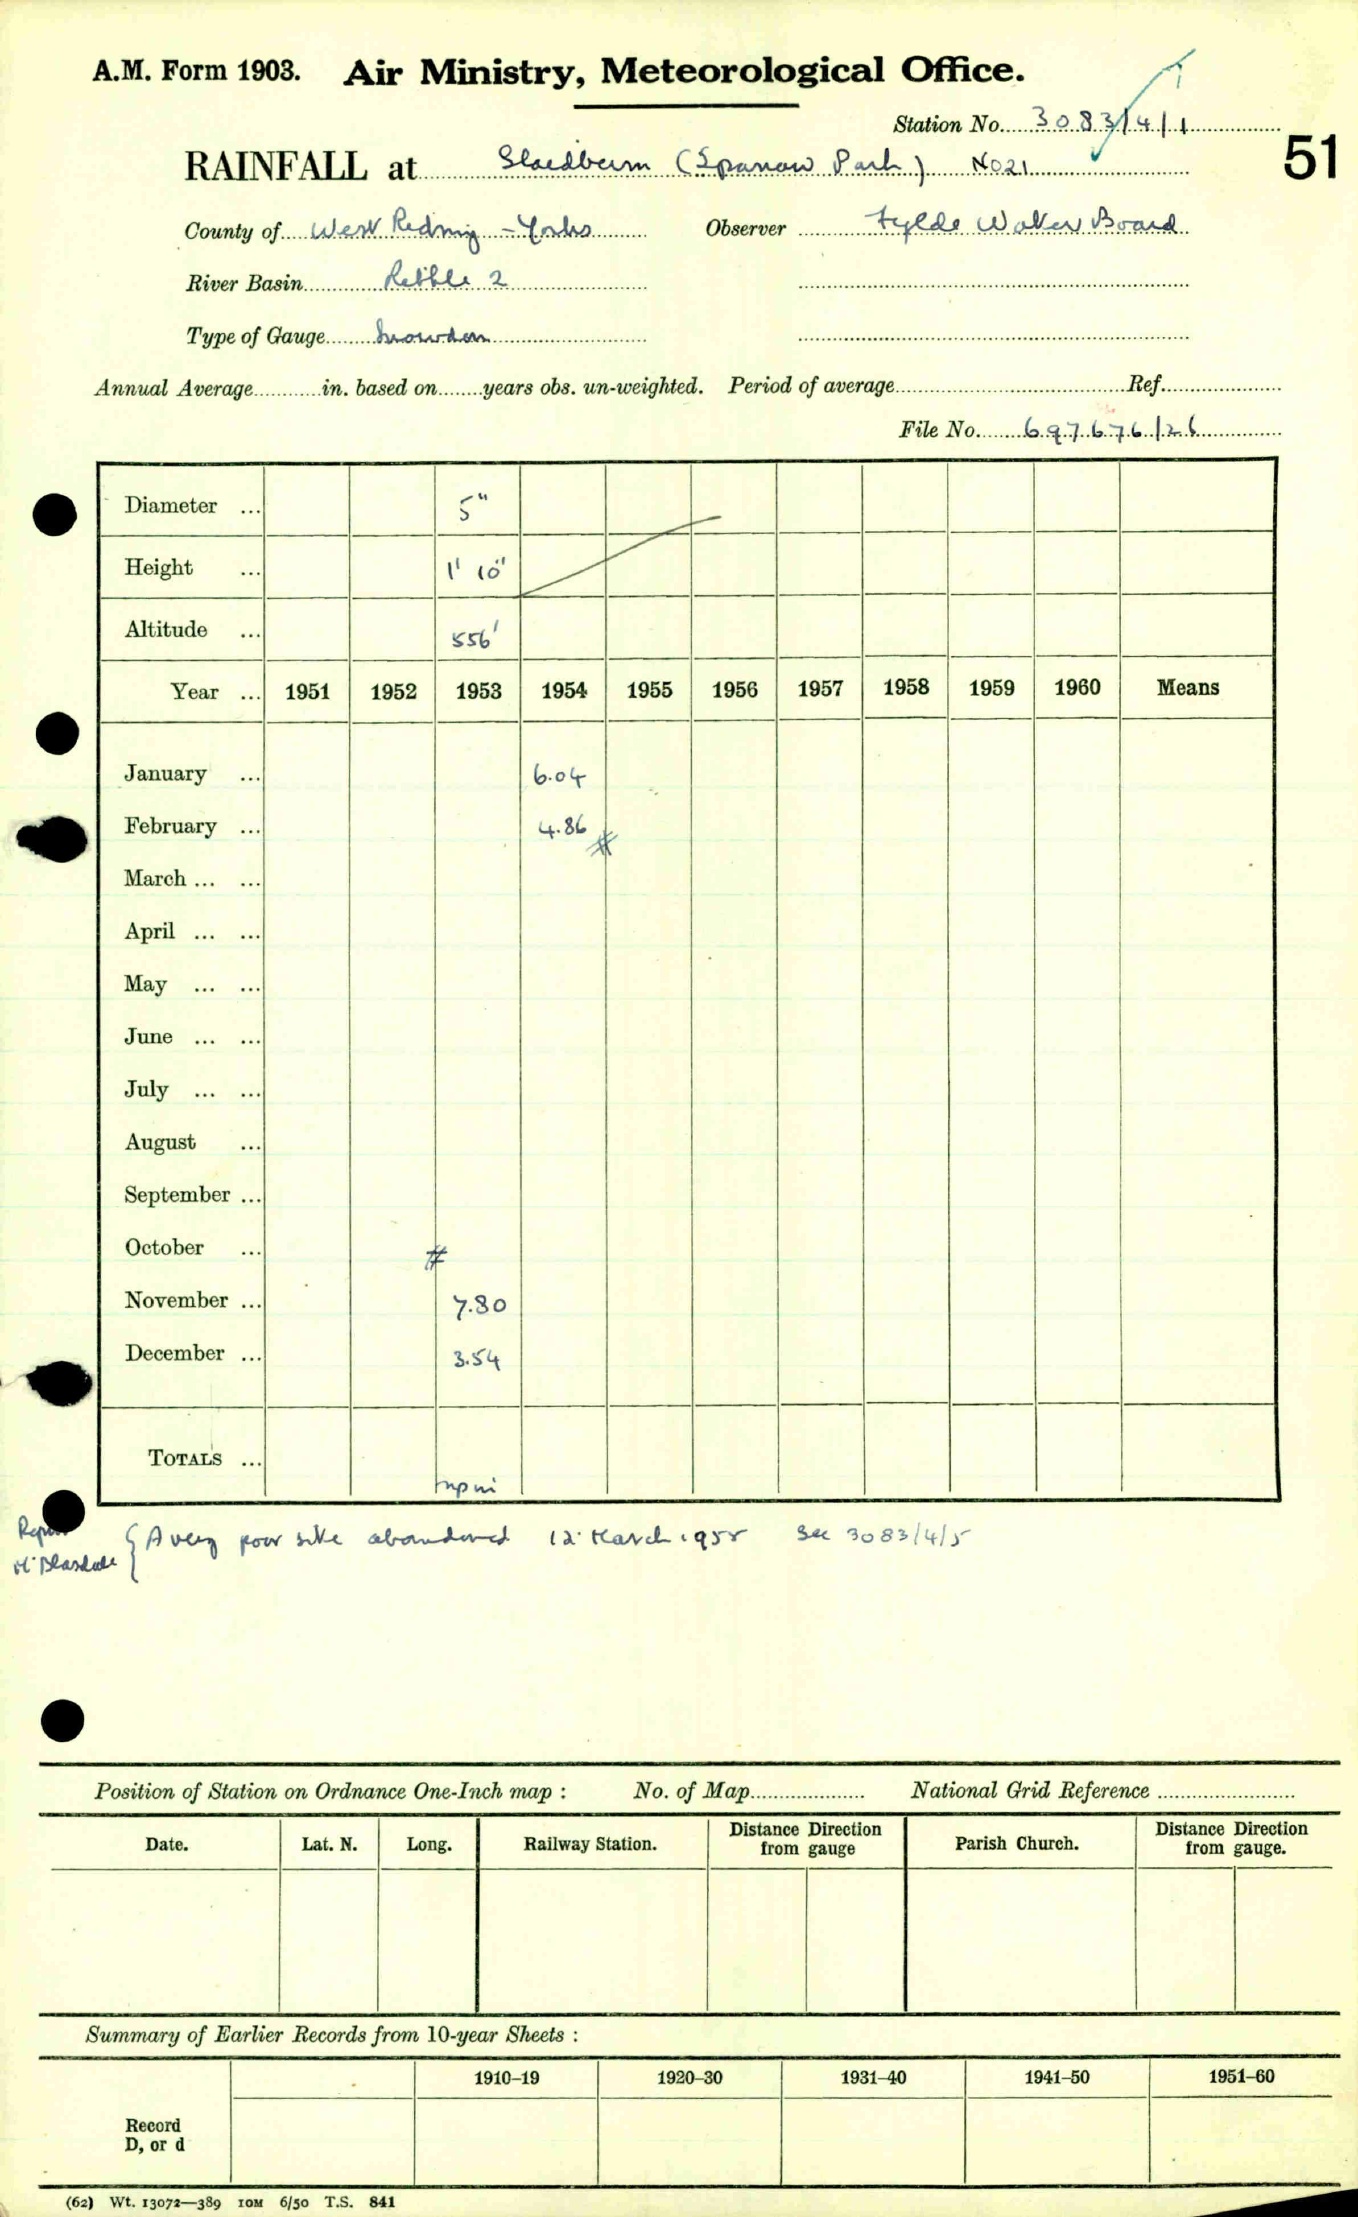 A.M. Form 1903. Air Ministry, Meteorological Office.
Station No. 3083/4/1
51
RAINFALL at Slaidburn (Sparrow Park) No 21
County of West Riding - Yorks Observer Fylde Water Board
River Basin Ribble 2
Type of Gauge Snowdon
Annual Average in. based on years obs. un-weighted. Period of average Ref.
File No. 697676/26
Diameter ... 5"
Height ... 1' 10"
Altitude ... 556'
Year ... 1951 1952 1953 1954 1955 1956 1957 1958 1959 1960 Means
January ... 6.04
February ... 4.86 #
March ... ...
April ... ...
May ... ...
June ... ...
July ... ...
August ...
September ...
October ... #
November ... 7.80
December ... 3.54
TOTALS ...
{ A very poor site abandoned 12 March 1955 See 3083/4/5
Position of Station on Ordnance One-Inch map : No. of Map National Grid Reference
Date. Lat. N. Long. Railway Station. Distance Direction from gauge Parish Church. Distance Direction from gauge.
Summary of Earlier Records from 10-year Sheets :
1910–19 1920–30 1931–40 1941–50 1951–60
Record
D, or d
(62) Wt. 13072—389 10M 6/50 T.S. 841